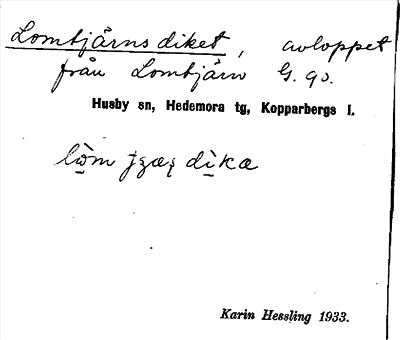 Lomtjärns diket, avloppet
från Lomtjärn G. 90.
Husby sn, Hedemora tg, Kopparbergs l.
Karin Hessling 1933.